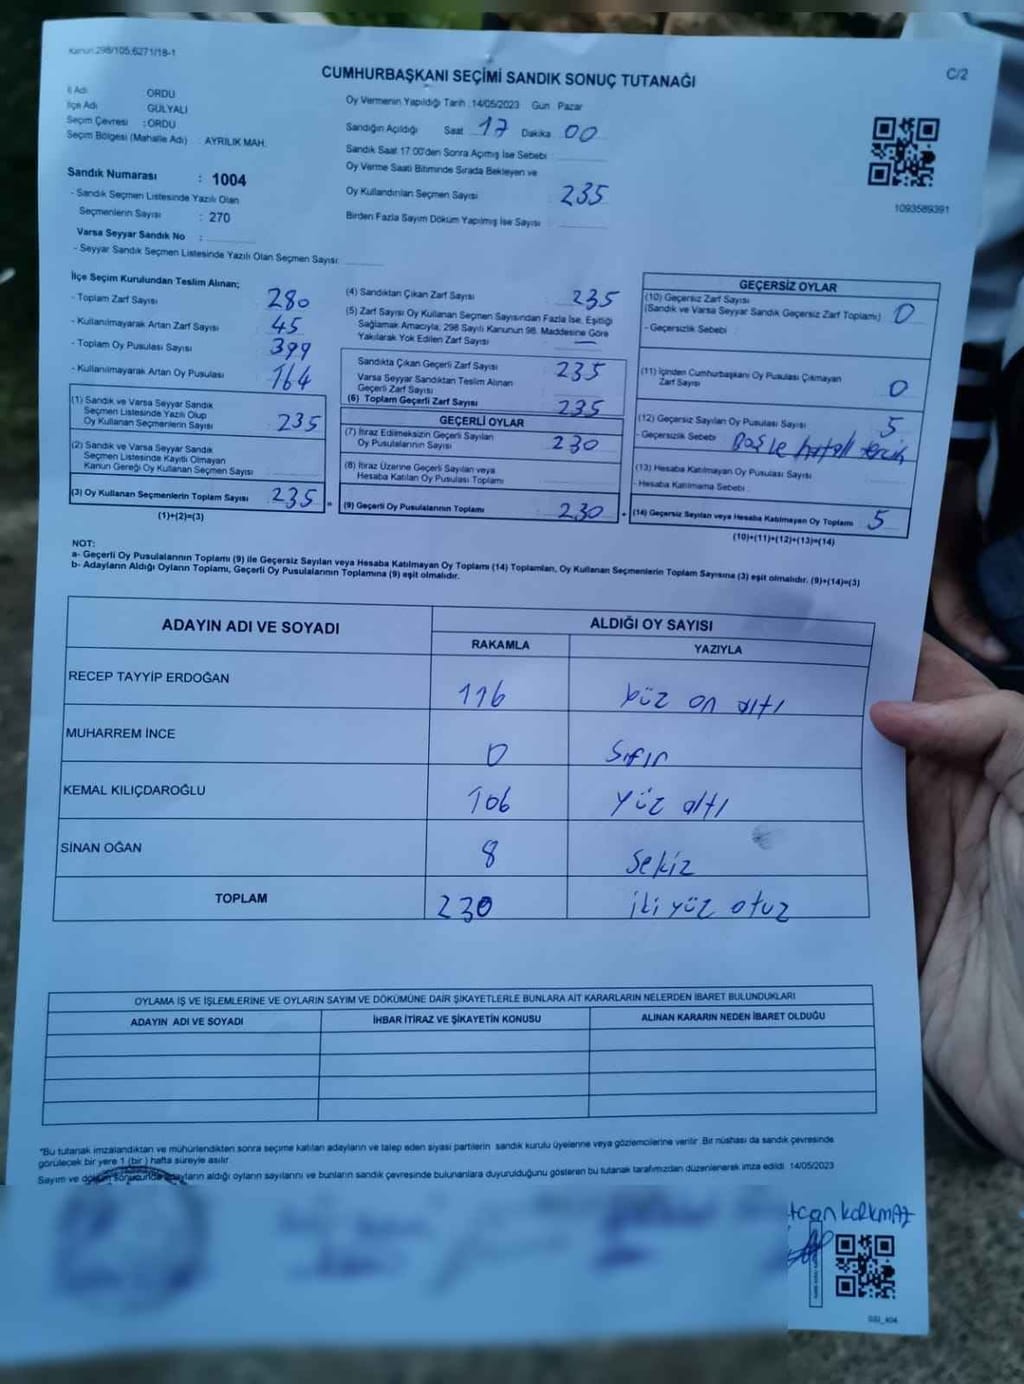 Kanun:298/105,6271/18-1
C/2
CUMHURBAŞKANI SEÇİMİ SANDIK SONUÇ TUTANAĞI
İl Adı ORDU
İlçe Adı GÜLYALI
Seçim Çevresi :ORDU
Seçim Bölgesi (Mahalle Adı) AYRILIK MAH.
Oy Vermenin Yapıldığı Tarih :14/05/2023 Gün : Pazar
Sandığın Açıldığı Saat 17 Dakika 00
Sandık Saat 17:00'den Sonra Açılmış İse Sebebi
Oy Verme Saati Bitiminde Sırada Bekleyen ve
Oy Kullandırılan Seçmen Sayısı 235
Birden Fazla Sayım Döküm Yapılmış İse Sayısı
1093589391
Sandık Numarası : 1004
- Sandık Seçmen Listesinde Yazılı Olan
Seçmenlerin Sayısı : 270
Varsa Seyyar Sandık No :
- Seyyar Sandık Seçmen Listesinde Yazılı Olan Seçmen Sayısı:
İlçe Seçim Kurulundan Teslim Alınan;
- Toplam Zarf Sayısı 280
- Kullanılmayarak Artan Zarf Sayısı 45
- Toplam Oy Pusulası Sayısı 399
- Kullanılmayarak Artan Oy Pusulası 164
(1) Sandık ve Varsa Seyyar Sandık
Seçmen Listesinde Yazılı Olup
Oy Kullanan Seçmenlerin Sayısı 235
(2) Sandık ve Varsa Seyyar Sandık
Seçmen Listesinde Kayıtlı Olmayan
Kanun Gereği Oy Kullanan Seçmen Sayısı
(3) Oy Kullanan Seçmenlerin Toplam Sayısı 235
(1)+(2)=(3)
(4) Sandıktan Çıkan Zarf Sayısı 235
(5) Zarf Sayısı Oy Kullanan Seçmen Sayısından Fazla İse, Eşitliği
Sağlamak Amacıyla, 298 Sayılı Kanunun 98. Maddesine Göre
Yakılarak Yok Edilen Zarf Sayısı —
Sandıkta Çıkan Geçerli Zarf Sayısı 235
Varsa Seyyar Sandıktan Teslim Alınan
Geçerli Zarf Sayısı
(6) Toplam Geçerli Zarf Sayısı 235
GEÇERLİ OYLAR
(7) İtiraz Edilmeksizin Geçerli Sayılan
Oy Pusulalarının Sayısı 230
(8) İtiraz Üzerine Geçerli Sayılan veya
Hesaba Katılan Oy Pusulası Toplamı
= (9) Geçerli Oy Pusulalarının Toplamı 230 +
GEÇERSİZ OYLAR
(10) Geçersiz Zarf Sayısı
(Sandık ve Varsa Seyyar Sandık Geçersiz Zarf Toplamı) 0
- Geçersizlik Sebebi :
(11) İçinden Cumhurbaşkanı Oy Pusulası Çıkmayan
Zarf Sayısı 0
(12) Geçersiz Sayılan Oy Pusulası Sayısı 5
- Geçersizlik Sebebi
(13) Hesaba Katılmayan Oy Pusulası Sayısı
- Hesaba Katılmama Sebebi :
(14) Geçersiz Sayılan veya Hesaba Katılmayan Oy Toplamı 5
(10)+(11)+(12)+(13)=(14)
NOT:
a- Geçerli Oy Pusulalarının Toplamı (9) ile Geçersiz Sayılan veya Hesaba Katılmayan Oy Toplamı (14) Toplamları, Oy Kullanan Seçmenlerin Toplam Sayısına (3) eşit olmalıdır. (9)+(14)=(3)
b- Adayların Aldığı Oyların Toplamı, Geçerli Oy Pusulalarının Toplamına (9) eşit olmalıdır.
ADAYIN ADI VE SOYADI ALDIĞI OY SAYISI
RAKAMLA YAZIYLA
RECEP TAYYİP ERDOĞAN 116 yüz on altı
MUHARREM İNCE 0 Sıfır
KEMAL KILIÇDAROĞLU 106 yüz altı
SİNAN OĞAN 8 Sekiz
TOPLAM 230 iki yüz otuz
OYLAMA İŞ VE İŞLEMLERİNE VE OYLARIN SAYIM VE DÖKÜMÜNE DAİR ŞİKAYETLERLE BUNLARA AİT KARARLARIN NELERDEN İBARET BULUNDUKLARI
ADAYIN ADI VE SOYADI İHBAR İTİRAZ VE ŞİKAYETİN KONUSU ALINAN KARARIN NEDEN İBARET OLDUĞU
*Bu tutanak imzalandıktan ve mühürlendikten sonra seçime katılan adayların ve talep eden siyasi partilerin sandık kurulu üyelerine veya gözlemcilerine verilir. Bir nüshası da sandık çevresinde
görülecek bir yere 1 (bir ) hafta süreyle asılır.
Sayım ve döküm sonucunda adayların aldığı oyların sayılarını ve bunların sandık çevresinde bulunanlara duyurulduğunu gösteren bu tutanak tarafımızdan düzenlenerek imza edildi. 14/05/2023
tcan korkmaz